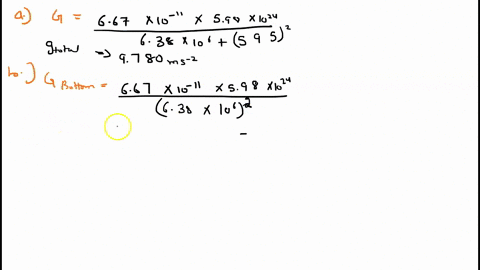 a.) G = 6.67 × 10⁻¹¹ × 5.98 × 10²⁴
6.38 × 10⁶ + (595)²
g total => 9.780 ms⁻²
b.) G Bottom = 6.67 × 10⁻¹¹ × 5.98 × 10²⁴
(6.38 × 10⁶)²